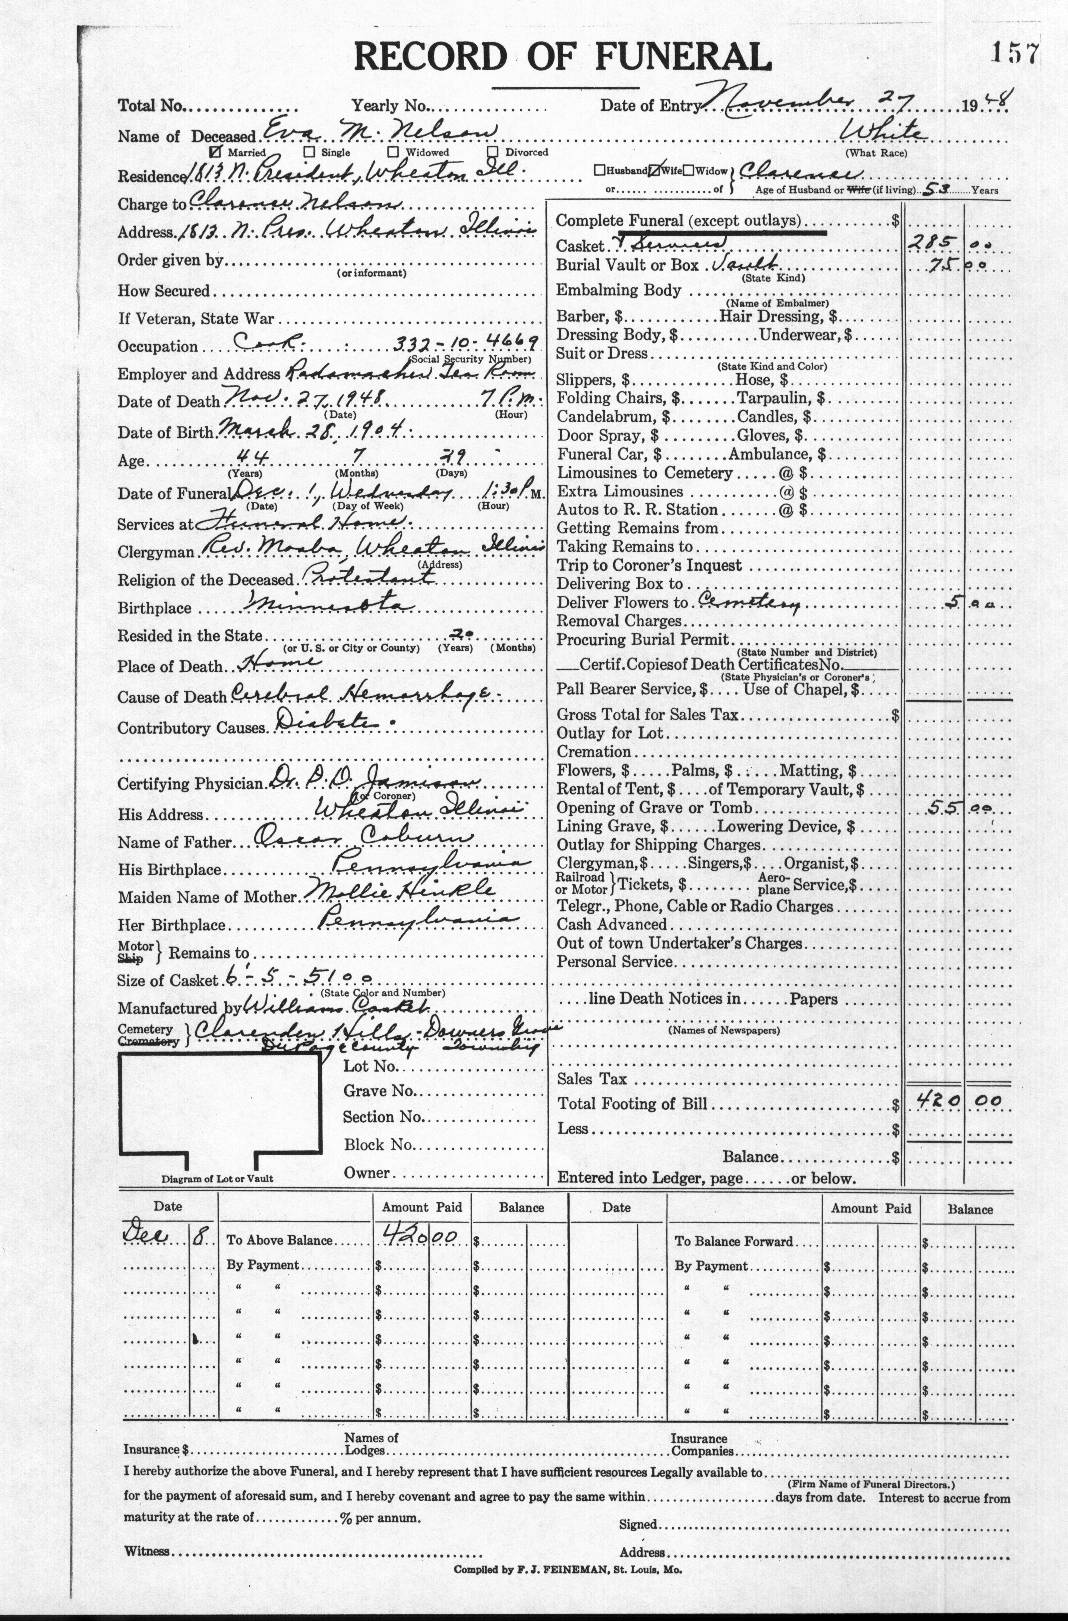 157
RECORD OF FUNERAL
Total No. Yearly No. Date of Entry November 27 1948
Name of Deceased Eva M. Nelson White
☑ Married ☐ Single ☐ Widowed ☐ Divorced (What Race)
Residence 1813 N. President, Wheaton Ill. ☐ Husband ☑ Wife ☐ Widow } Clarence
or of } Age of Husband or Wife (if living) 53 Years
Charge to Clarence Nelson
Address 1813 N. Pres. Wheaton Illinois
Order given by
(or informant)
How Secured
If Veteran, State War
Occupation Cook 332-10-4669
(Social Security Number)
Employer and Address Tea Room
Date of Death Nov. 27, 1948 7 P.m.
(Date) (Hour)
Date of Birth March 28, 1904
Age 44 7 29
(Years) (Months) (Days)
Date of Funeral Dec. 1, Wednesday 1:30 P.M.
(Date) (Day of Week) (Hour)
Services at Funeral Home
Clergyman Rev. Wheaton Illinois
(Address)
Religion of the Deceased Protestant
Birthplace Minnesota
Resided in the State 20
(or U. S. or City or County) (Years) (Months)
Place of Death Home
Cause of Death Cerebral Hemorrhage
Contributory Causes Diabetes
Certifying Physician Dr. D. Jamison
(or Coroner)
His Address Wheaton Illinois
Name of Father Oscar Coburn
His Birthplace Pennsylvania
Maiden Name of Mother Mollie Hinkle
Her Birthplace Pennsylvania
Motor Ship } Remains to
Size of Casket 6'-5 - 5100
(State Color and Number)
Manufactured by Williams Casket
Cemetery Crematory } Clarenden Hills - Downers Grove
DuPage County Township
Lot No.
Grave No.
Section No.
Block No.
Owner
Diagram of Lot or Vault
Complete Funeral (except outlays) $
Casket & Services 285 00
Burial Vault or Box Vault 75 00
(State Kind)
Embalming Body
(Name of Embalmer)
Barber, $ Hair Dressing, $
Dressing Body, $ Underwear, $
Suit or Dress
(State Kind and Color)
Slippers, $ Hose, $
Folding Chairs, $ Tarpaulin, $
Candelabrum, $ Candles, $
Door Spray, $ Gloves, $
Funeral Car, $ Ambulance, $
Limousines to Cemetery @ $
Extra Limousines @ $
Autos to R. R. Station @ $
Getting Remains from
Taking Remains to
Trip to Coroner's Inquest
Delivering Box to
Deliver Flowers to Cemetery 5 00
Removal Charges
Procuring Burial Permit
(State Number and District)
Certif. Copies of Death Certificates No.
(State Physician's or Coroner's)
Pall Bearer Service, $ Use of Chapel, $
Gross Total for Sales Tax $
Outlay for Lot
Cremation
Flowers, $ Palms, $ Matting, $
Rental of Tent, $ of Temporary Vault, $
Opening of Grave or Tomb 55 00
Lining Grave, $ Lowering Device, $
Outlay for Shipping Charges
Clergyman, $ Singers, $ Organist, $
Railroad or Motor } Tickets, $ Aero-plane Service, $
Telegr., Phone, Cable or Radio Charges
Cash Advanced
Out of town Undertaker's Charges
Personal Service
line Death Notices in Papers
(Names of Newspapers)
Sales Tax
Total Footing of Bill $ 420 00
Less $
Balance $
Entered into Ledger, page or below.
Date Amount Paid Balance Date Amount Paid Balance
Dec 8 To Above Balance 420 00 $ To Balance Forward $
By Payment $ $ By Payment $ $
" " $ $ " " $ $
" " $ $ " " $ $
" " $ $ " " $ $
" " $ $ " " $ $
" " $ $ " " $ $
" " $ $ " " $ $
Insurance $ Names of Lodges Insurance Companies
I hereby authorize the above Funeral, and I hereby represent that I have sufficient resources Legally available to
(Firm Name of Funeral Directors.)
for the payment of aforesaid sum, and I hereby covenant and agree to pay the same within days from date. Interest to accrue from
maturity at the rate of % per annum.
Signed
Witness Address
Compiled by F. J. FEINEMAN, St. Louis, Mo.